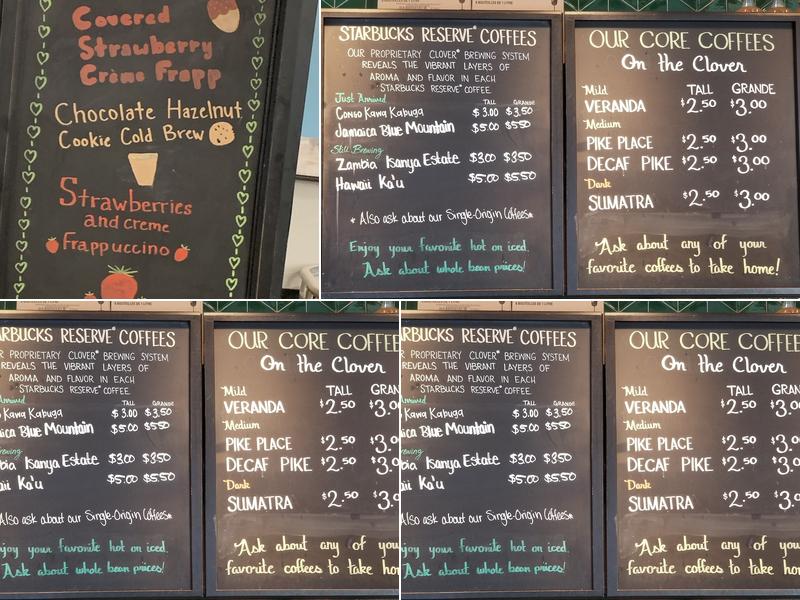 Covered
Strawberry
Crème Frapp
Chocolate Hazelnut
Cookie Cold Brew
Strawberries
and creme
Frappuccino
STARBUCKS RESERVE® COFFEES
OUR PROPRIETARY CLOVER® BREWING SYSTEM
REVEALS THE VIBRANT LAYERS OF
AROMA AND FLAVOR IN EACH
STARBUCKS RESERVE® COFFEE.
Just Arrived TALL GRANDE
Congo Kawa Kabuga $3.00 $3.50
Jamaica Blue Mountain $5.00 $5.50
Still Brewing
Zambia Isanya Estate $3.00 $3.50
Hawaii Ka'u $5.00 $5.50
* Also ask about our Single-Origin Coffees*
Enjoy your favorite hot on iced.
Ask about whole bean prices!
OUR CORE COFFEES
On the Clover
Mild TALL GRANDE
VERANDA $2.50 $3.00
Medium
PIKE PLACE $2.50 $3.00
DECAF PIKE $2.50 $3.00
Dark
SUMATRA $2.50 $3.00
Ask about any of your
favorite coffees to take home!
RBUCKS RESERVE® COFFEES
R PROPRIETARY CLOVER® BREWING SYSTEM
REVEALS THE VIBRANT LAYERS OF
AROMA AND FLAVOR IN EACH
STARBUCKS RESERVE® COFFEE.
Arrived TALL GRANDE
o Kawa Kabuga $3.00 $3.50
aica Blue Mountain $5.00 $5.50
rewing
bia Isanya Estate $3.00 $3.50
aii Ka'u $5.00 $5.50
Also ask about our Single-Origin Coffees*
njoy your favorite hot on iced.
Ask about whole bean prices!
OUR CORE COFFE
On the Clover
Mild TALL GRAN
VERANDA $2.50 $3.0
Medium
PIKE PLACE $2.50 $3.0
DECAF PIKE $2.50 $3.0
Dark
SUMATRA $2.50 $3.0
Ask about any of you
favorite coffees to take hom
RBUCKS RESERVE® COFFEES
R PROPRIETARY CLOVER® BREWING SYSTEM
REVEALS THE VIBRANT LAYERS OF
AROMA AND FLAVOR IN EACH
STARBUCKS RESERVE® COFFEE.
Arrived TALL GRANDE
o Kawa Kabuga $3.00 $3.50
aica Blue Mountain $5.00 $5.50
rewing
bia Isanya Estate $3.00 $3.50
aii Ka'u $5.00 $5.50
Also ask about our Single-Origin Coffees*
njoy your favorite hot on iced.
Ask about whole bean prices!
OUR CORE COFFEE
On the Clover
Mild TALL GRAN
VERANDA $2.50 $3.0
Medium
PIKE PLACE $2.50 $3.0
DECAF PIKE $2.50 $3.0
Dark
SUMATRA $2.50 $3.0
Ask about any of you
favorite coffees to take hom